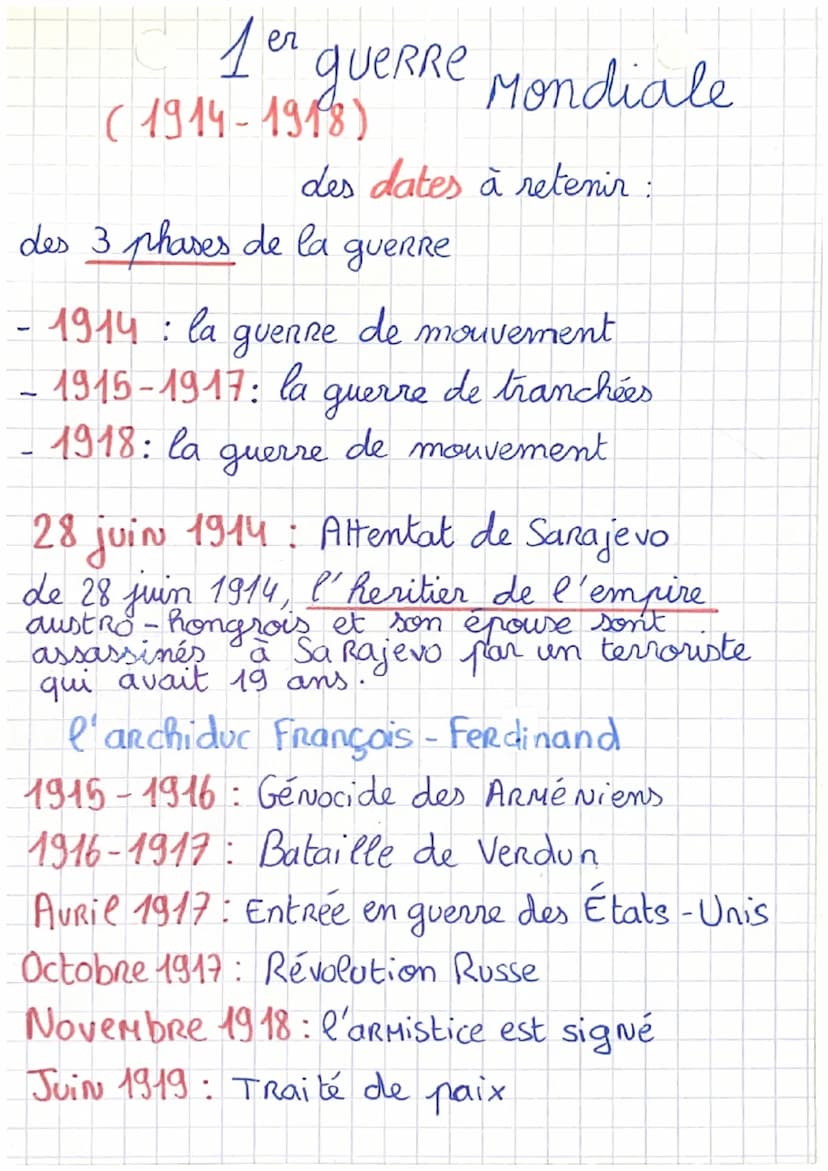 1er guerre Mondiale
(1914-1918)
des dates à retenir :
des 3 phases de la guerre
- 1914 : la guerre de mouvement
- 1915-1917: la guerre de tranchées
- 1918: la guerre de mouvement
28 juin 1914 : Attentat de Sarajevo
de 28 juin 1914, l'heritier de l'empire
austro-hongrois et son épouse sont
assassinés à Sarajevo par un terroriste
qui avait 19 ans.
l'archiduc François-Ferdinand
1915-1916 : Génocide des Arméniens
1916-1917 : Bataille de Verdun
Avril 1917 : Entrée en guerre des États-Unis
Octobre 1917 : Révolution Russe
Novembre 1918 : l'armistice est signé
Juin 1919 : Traité de paix